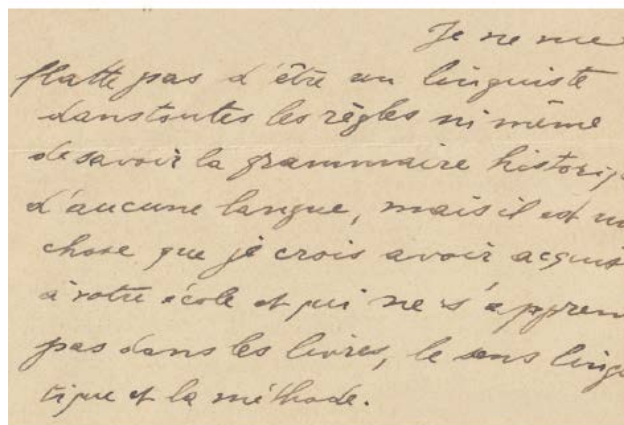 Je ne me
flatte pas d'être un linguiste
dans toutes les règles ni même
de savoir la grammaire historiq
d'aucune langue, mais il est un
chose que je crois avoir acquis
à votre école et qui ne s'appren
pas dans les livres, le sens lingu
tique et la méthode.